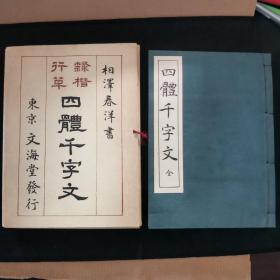 相澤春洋書
隸楷
行草
四體千字文
東京 文海堂發行
四體千字文 全